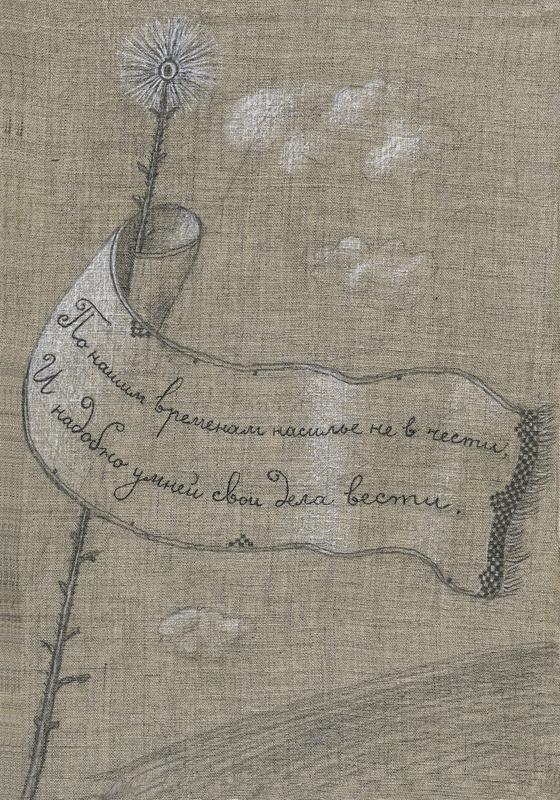 По нашим временам насилье не в чести,
И надобно умней свои дела вести.